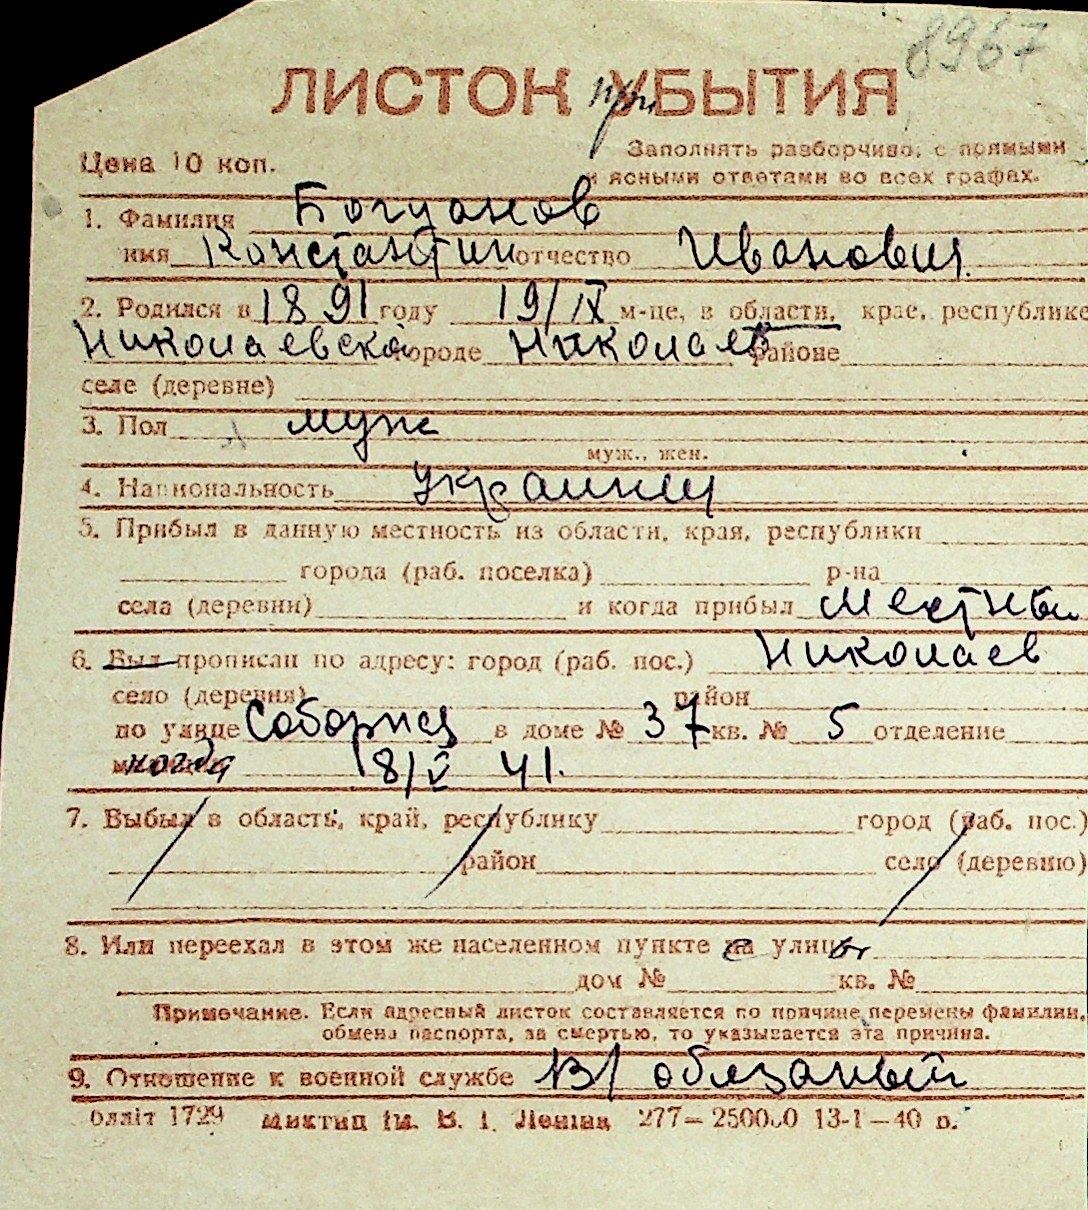 8967
ЛИСТОК при БЫТИЯ
Цена 10 коп.
Заполнять разборчиво, с прямыми
и ясными ответами во всех графах.
1. Фамилия Богданов
имя Константин отчество Иванович
2. Родился в 1891 году 19/IX м-це, в области, крае, республике
Николаевской городе Николаев районе
селе (деревне)
3. Пол муж
муж., жен.
4. Национальность украинец
5. Прибыл в данную местность из области, края, республики
города (раб. поселка) р-на
села (деревни) и когда прибыл местный
6. Был прописан по адресу: город (раб. пос.) Николаев
село (деревня) район
по улице Соборная в доме № 37 кв. № 5 отделение
когда 18/V 41.
7. Выбыл в область, край, республику город (раб. пос.)
район село (деревню)
8. Или переехал в этом же населенном пункте с улицы
дом № кв. №
Примечание. Если адресный листок составляется по причине перемены фамилии,
обмена паспорта, за смертью, то указывается эта причина.
9. Отношение к военной службе в/обязаный
блліт 1729 им. В. І. Леніна 277—250000 13-1—40 р.